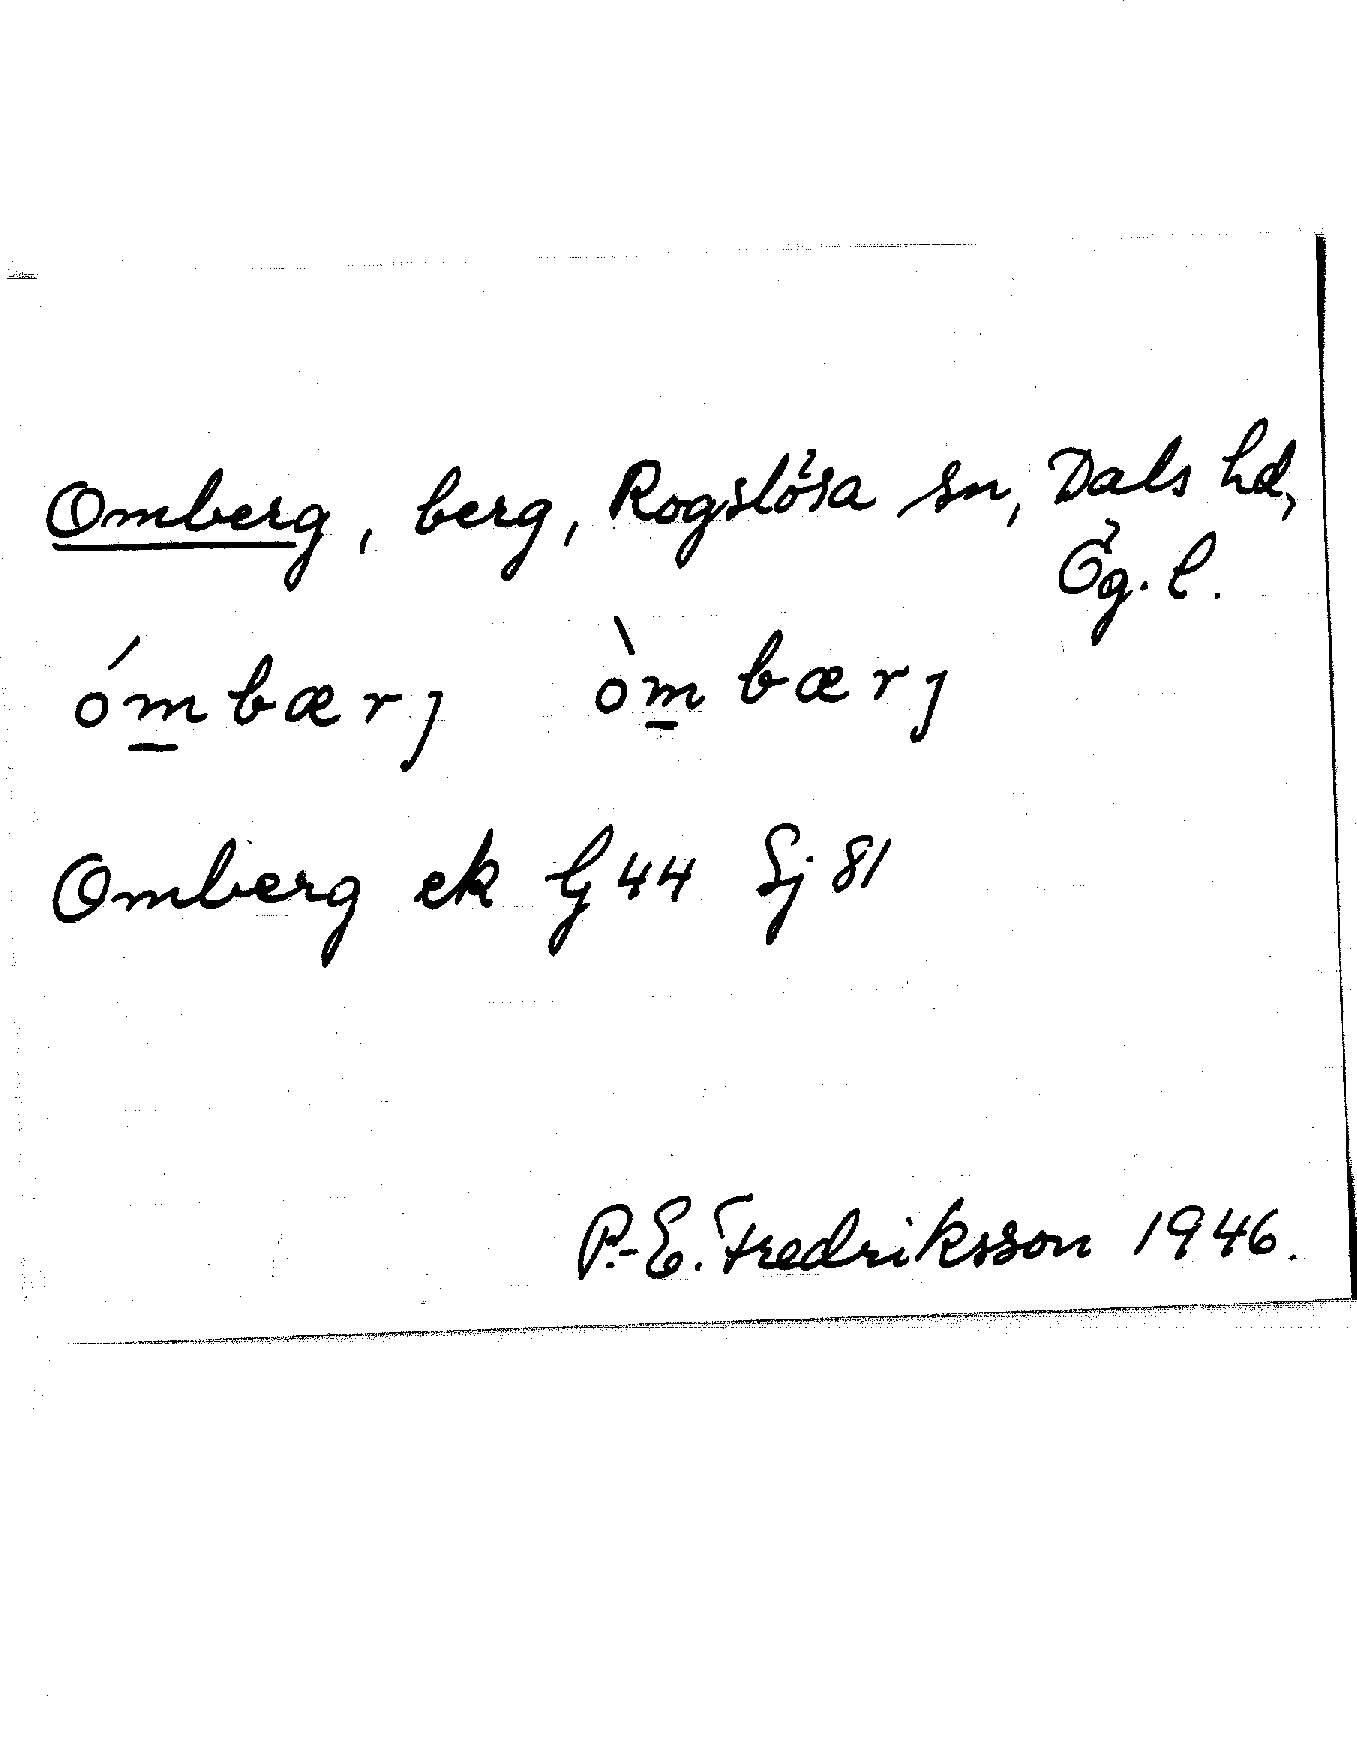 Omberg, berg, Rogslösa sn, Dals hd,
Ög. l.
óm̲bærj òm̲bærj
Omberg ek G 44 Sj 81
P.-E. Fredriksson 1946.